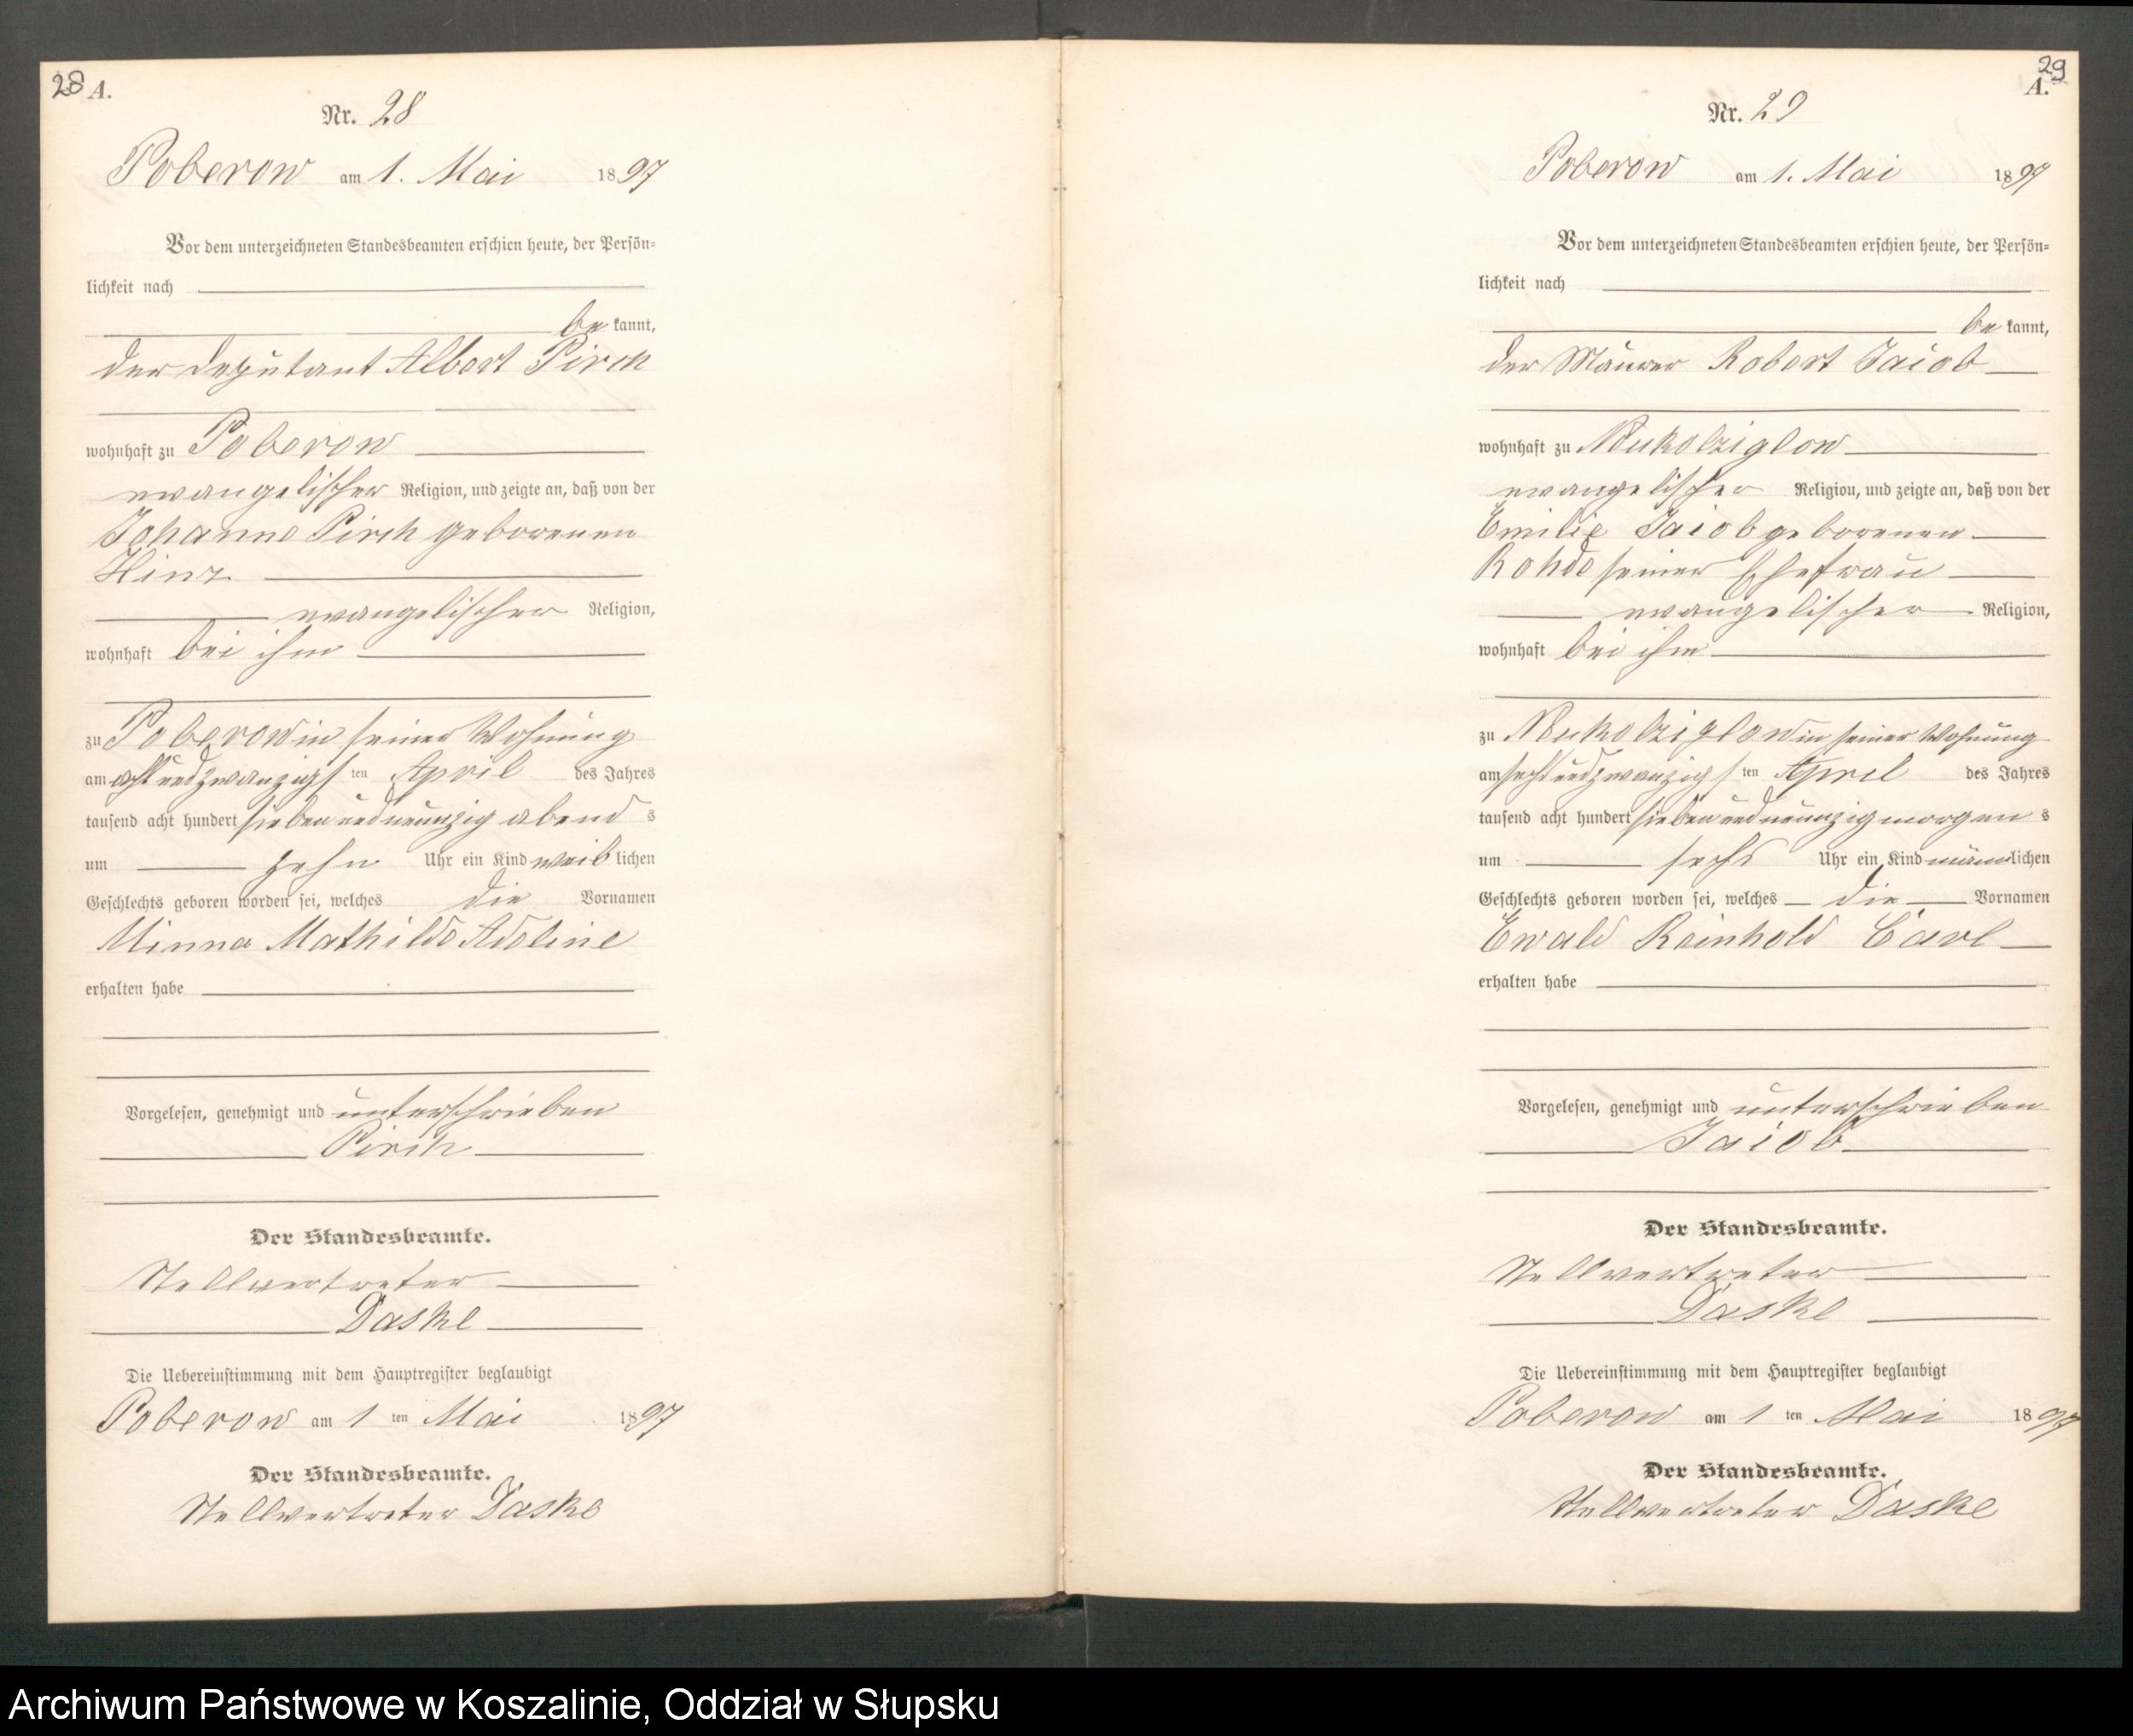 28 A.
Nr. 28
Poberow am 1. Mai 1897
Vor dem unterzeichneten Standesbeamten erschien heute, der Persön-
lichkeit nach
be kannt,
der Deputant Albert Pirch
wohnhaft zu Poberow
evangelischer Religion, und zeigte an, daß von der
Johanne Pirch geborenen
Hinz
evangelischer Religion,
wohnhaft bei ihm
zu Poberow in seiner Wohnung
am acht und zwanzigs ten April des Jahres
tausend acht hundert sieben und neunzig abend s
um zehn Uhr ein Kind weib lichen
Geschlechts geboren worden sei, welches die Vornamen
Minna Mathilde Adeline
erhalten habe
Vorgelesen, genehmigt und unterschrieben
Pirch
Der Standesbeamte.
Stellvertreter
Daske
Die Uebereinstimmung mit dem Hauptregister beglaubigt
Poberow am 1 ten Mai 1897
Der Standesbeamte.
Stellvertreter Daske
29
A.
Nr. 29
Poberow am 1. Mai 1897
Vor dem unterzeichneten Standesbeamten erschien heute, der Persön-
lichkeit nach
be kannt,
der Maurer Robert Jacob
wohnhaft zu Neukolziglow
evangelischer Religion, und zeigte an, daß von der
Emilie Jacob geborenen
Rohde seiner Ehefrau
evangelischer Religion,
wohnhaft bei ihm
zu Neukolziglow in seiner Wohnung
am sechs und zwanzigs ten April des Jahres
tausend acht hundert sieben und neunzig morgen s
um sechs Uhr ein Kind männ lichen
Geschlechts geboren worden sei, welches die Vornamen
Ewald Reinhold Carl
erhalten habe
Vorgelesen, genehmigt und unterschrieben
Jacob
Der Standesbeamte.
Stellvertreter
Daske
Die Uebereinstimmung mit dem Hauptregister beglaubigt
Poberow am 1 ten Mai 1897
Der Standesbeamte.
Stellvertreter Daske
Archiwum Państwowe w Koszalinie, Oddział w Słupsku